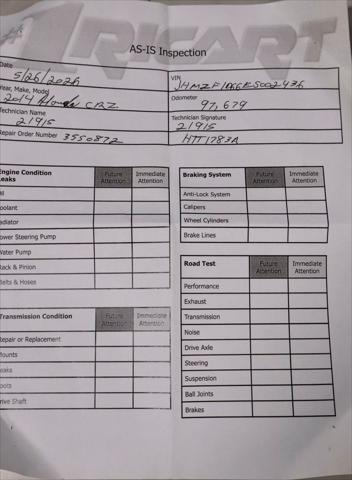 RICART
AS-IS Inspection
Date
5/26/2026
VIN
Year, Make, Model
2014 Honda CRZ
Odometer
97,679
Technician Name
21915
Technician Signature
21915
Repair Order Number 3550872
HTT1783A
Engine Condition
Leaks
Future Attention
Immediate Attention
Oil
Coolant
Radiator
Power Steering Pump
Water Pump
Rack & Pinion
Belts & Hoses
Transmission Condition
Future Attention
Immediate Attention
Repair or Replacement
Mounts
Leaks
Boots
Drive Shaft
Braking System
Future Attention
Immediate Attention
Anti-Lock System
Calipers
Wheel Cylinders
Brake Lines
Road Test
Future Attention
Immediate Attention
Performance
Exhaust
Transmission
Noise
Drive Axle
Steering
Suspension
Ball Joints
Brakes